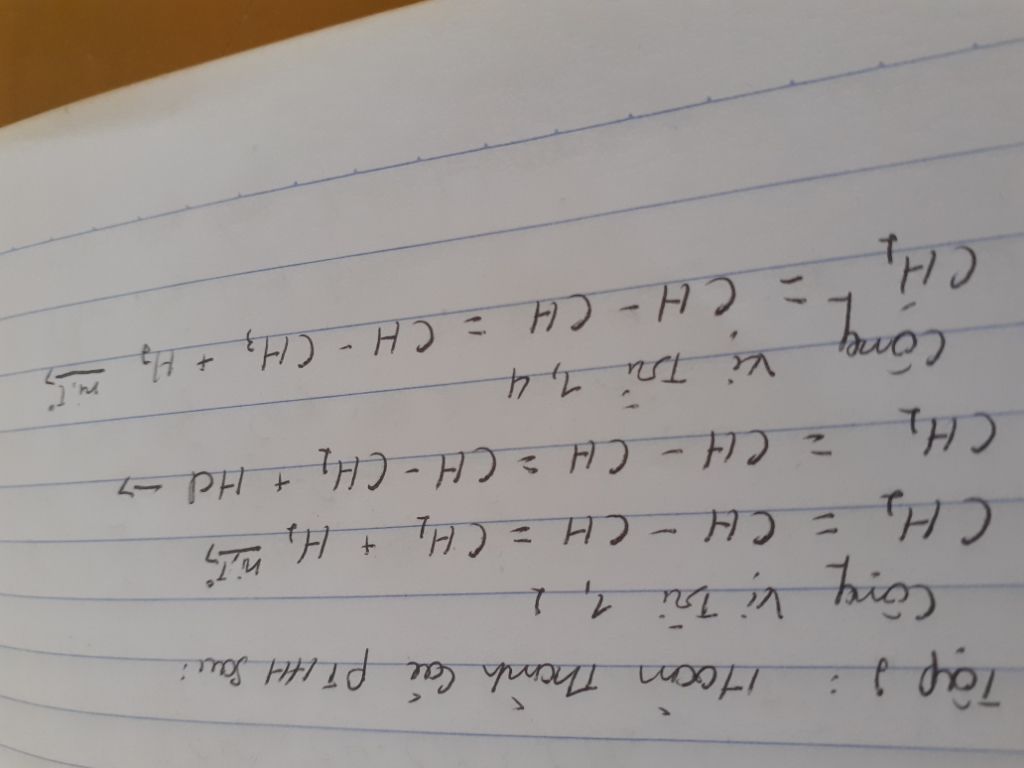 Tập 2 : Hoàn Thành Các PTHH Sau:
Cộng Vị Trí 1,2
CH2 = CH - CH = CH2 + H2 ni,T° →
CH2 = CH - CH = CH - CH2 + HCl →
Cộng Vị Trí 1,4
CH2 = CH - CH = CH - CH3 + H2 ni,T° →